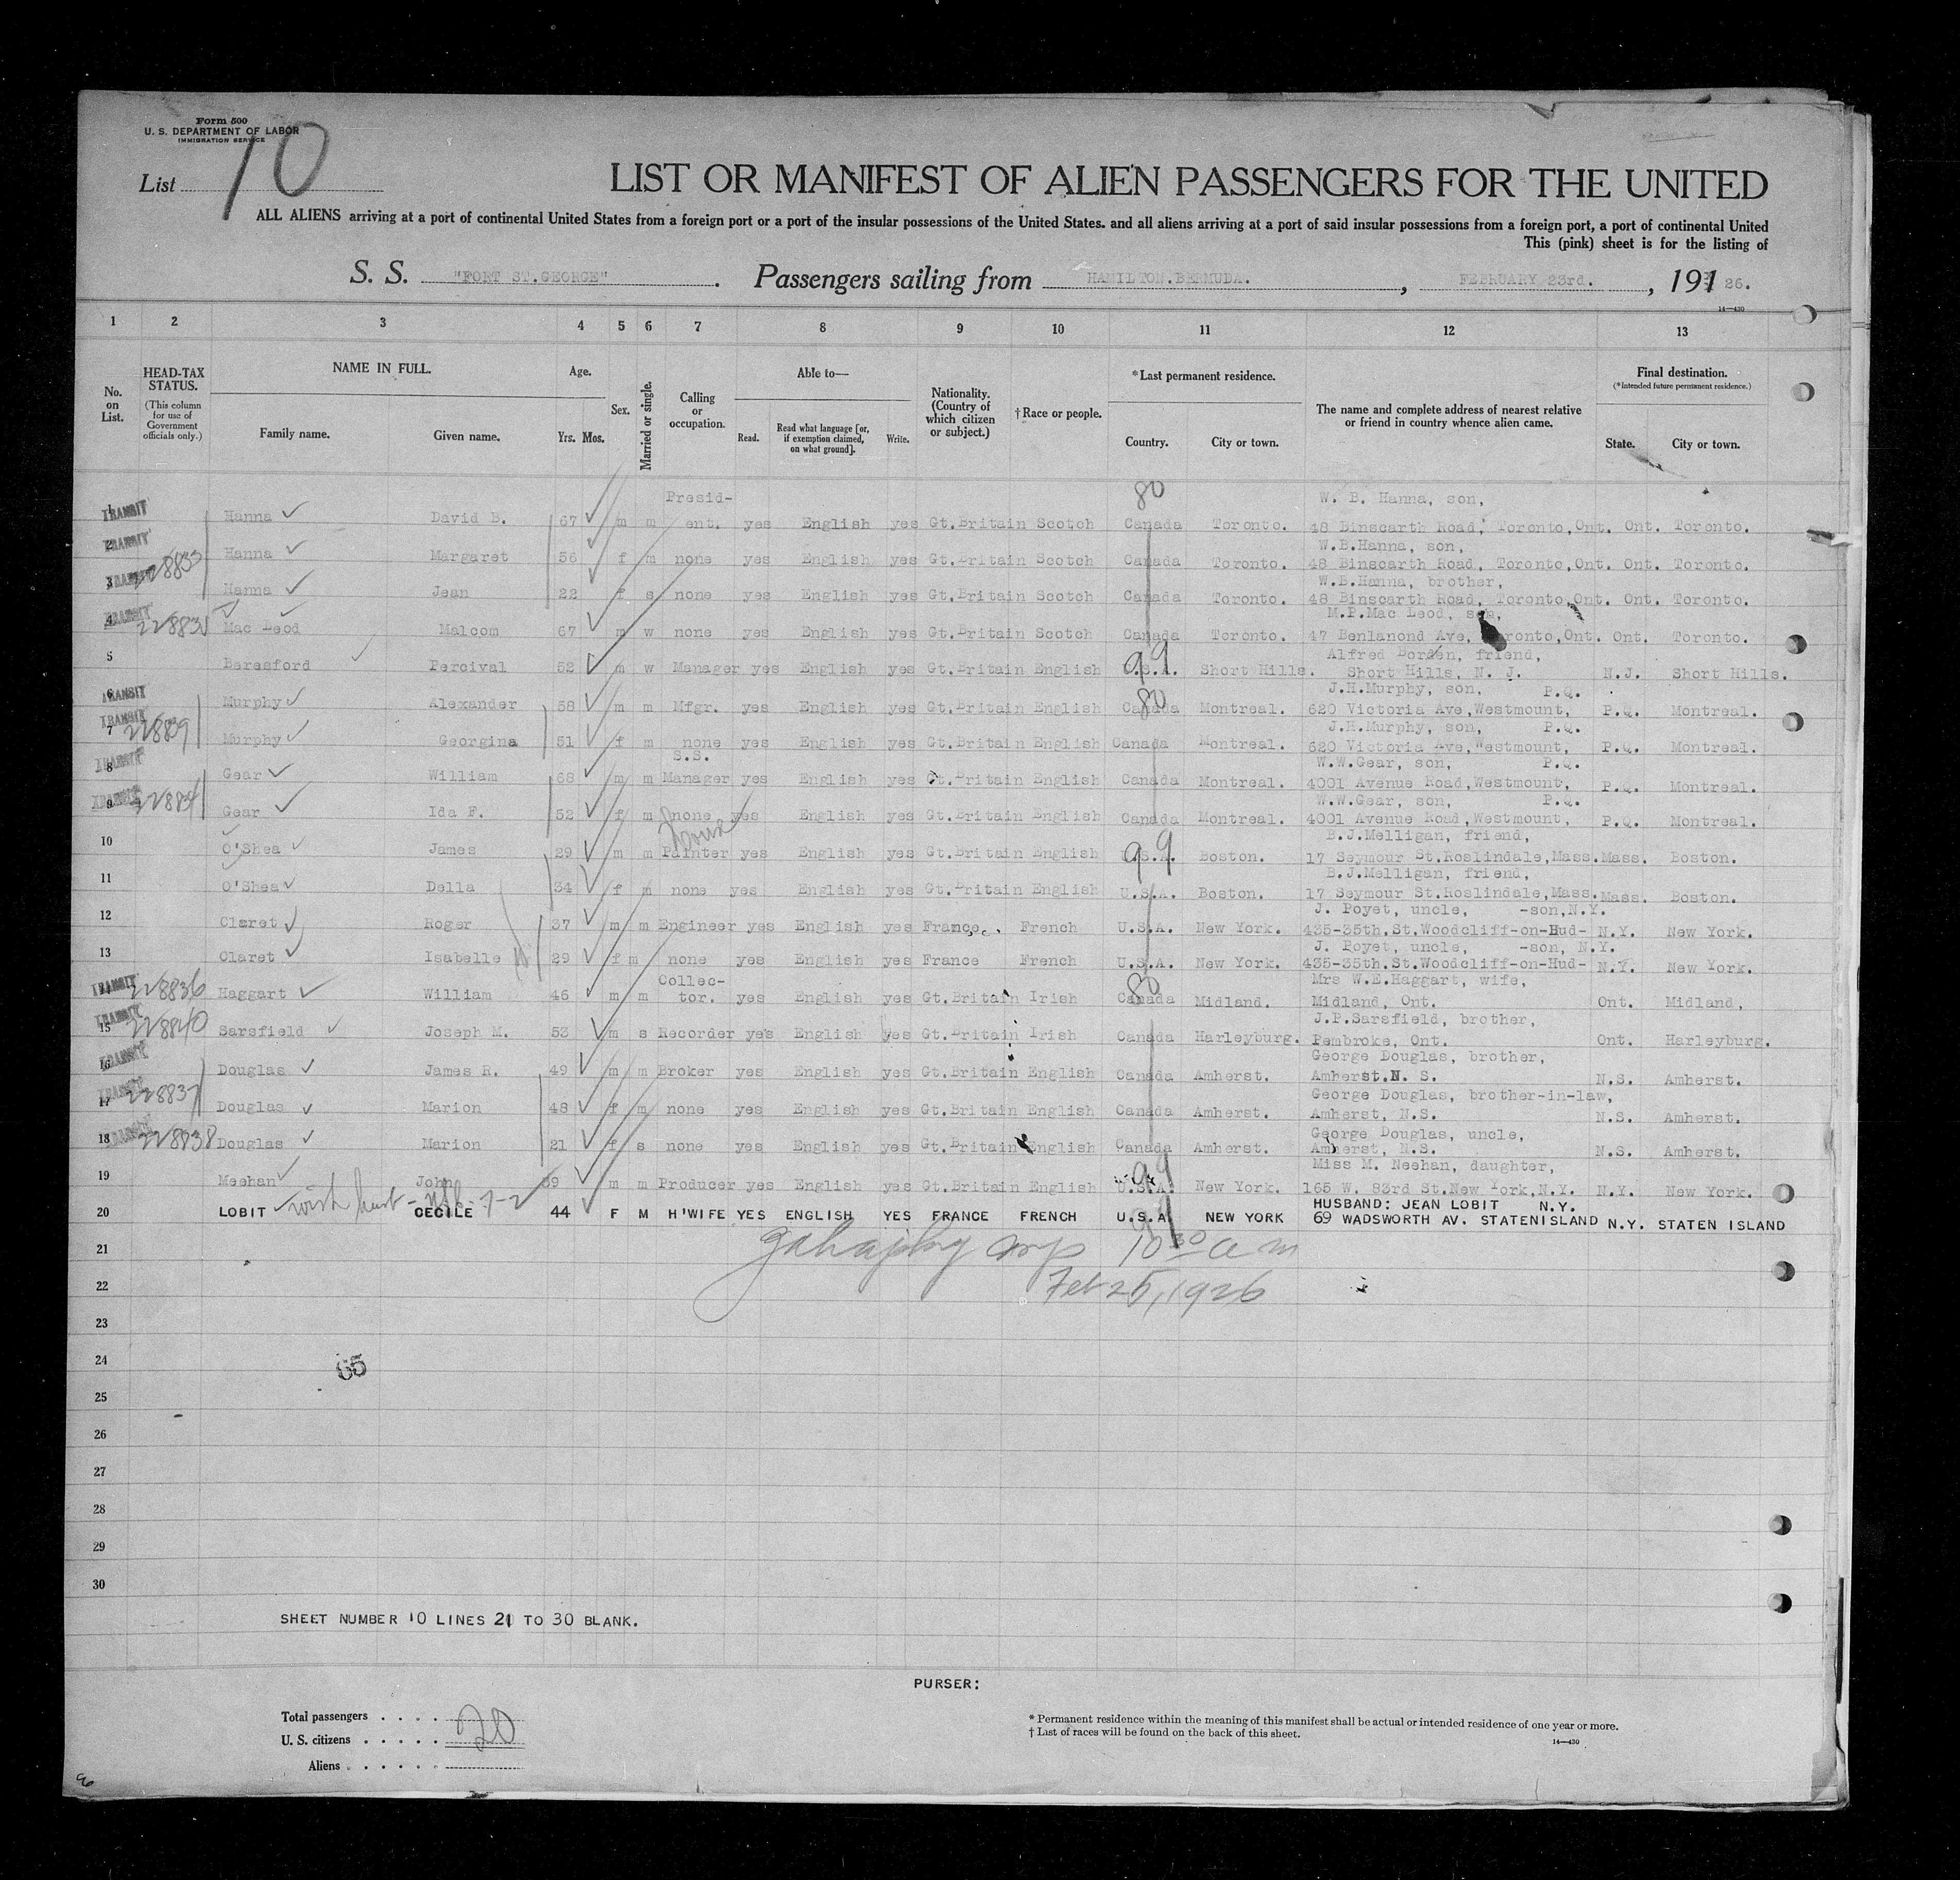 Form 500
U. S. DEPARTMENT OF LABOR
IMMIGRATION SERVICE
List 10
LIST OR MANIFEST OF ALIEN PASSENGERS FOR THE UNITED
ALL ALIENS arriving at a port of continental United States from a foreign port or a port of the insular possessions of the United States. and all aliens arriving at a port of said insular possessions from a foreign port, a port of continental United
This (pink) sheet is for the listing of
S. S. "FORT ST.GEORGE" . Passengers sailing from HAMILTON.BERMUDA. , FEBRUARY 23rd. , 191 26.
14—430
1 2 3 4 5 6 7 8 9 10 11 12 13
No. on List. HEAD-TAX STATUS. (This column for use of Government officials only.) NAME IN FULL. Family name. Given name. Age. Yrs. Mos. Sex. Married or single. Calling or occupation. Able to— Read. Read what language [or, if exemption claimed, on what ground]. Write. Nationality. (Country of which citizen or subject.) † Race or people. * Last permanent residence. Country. City or town. The name and complete address of nearest relative or friend in country whence alien came. Final destination. (* Intended future permanent residence.) State. City or town.
Presid- 80 W. B. Hanna, son,
1 TRANSIT Hanna David B. 67 m m ent. yes English yes Gt.Britain Scotch Canada Toronto. 48 Binscarth Road, Toronto,Ont. Ont. Toronto.
W.B.Hanna, son,
2 TRANSIT Hanna Margaret 56 f m none yes English yes Gt.Britain Scotch Canada Toronto. 48 Binscarth Road, Toronto,Ont. Ont. Toronto.
W.B.Hanna, brother,
3 TRANSIT Hanna Jean 22 f s none yes English yes Gt.Britain Scotch Canada Toronto. 48 Binscarth Road, Toronto,Ont. Ont. Toronto.
M.P.Mac Leod, son,
4 TRANSIT Mac Leod Malcom 67 m w none yes English yes Gt.Britain Scotch Canada Toronto. 47 Benlanond Ave, Toronto,Ont. Ont. Toronto.
Alfred Borden, friend,
5 Beresford Percival 52 m w Manager yes English yes Gt.Britain English 99 U.S.A. Short Hills. Short Hills, N. J. N.J. Short Hills.
J.H.Murphy, son, P.Q.
6 TRANSIT Murphy Alexander 58 m m Mfgr. yes English yes Gt.Britain English 80 Canada Montreal. 620 Victoria Ave,Westmount, P.Q. Montreal.
J.H.Murphy, son, P.Q.
7 TRANSIT 22889 Murphy Georgina 51 f m none yes English yes Gt.Britain English Canada Montreal. 620 Victoria Ave,Westmount, P.Q. Montreal.
S.S. W.W.Gear, son, P.Q.
8 TRANSIT Gear William 68 m m Manager yes English yes Gt.Britain English Canada Montreal. 4001 Avenue Road,Westmount, P.Q. Montreal.
W.W.Gear, son, P.Q.
9 TRANSIT Gear Ida F. 52 f m none yes English yes Gt.Britain English Canada Montreal. 4001 Avenue Road,Westmount, P.Q. Montreal.
House B.J.Melligan, friend,
10 O'Shea James 29 m m Painter yes English yes Gt.Britain English 99 U.S.A. Boston. 17 Seymour St.Roslindale,Mass. Mass. Boston.
B.J.Melligan, friend,
11 O'Shea Della 34 f m none yes English yes Gt.Britain English U.S.A. Boston. 17 Seymour St.Roslindale,Mass. Mass. Boston.
J. Poyet, uncle, -son,N.Y.
12 Claret Roger 37 m m Engineer yes English yes France. French U.S.A. New York. 435-35th.St.Woodcliff-on-Hud- N.Y. New York.
J. Poyet, uncle, -son, N.Y.
13 Claret Isabelle 29 f m none yes English yes France French U.S.A. New York. 435-35th.St.Woodcliff-on-Hud- N.Y. New York.
Collec- Mrs W.E.Haggart, wife,
14 TRANSIT 228836 Haggart William 46 m m tor. yes English yes Gt.Britain Irish 80 Canada Midland. Midland, Ont. Ont. Midland,
J.P.Sarsfield, brother,
15 TRANSIT 228840 Sarsfield Joseph M. 53 m s Recorder yes English yes Gt.Britain Irish Canada Harleyburg. Pembroke, Ont. Ont. Harleyburg.
George Douglas, brother,
16 TRANSIT Douglas James R. 49 m m Broker yes English yes Gt.Britain English Canada Amherst. Amherst.N. S. N.S. Amherst.
George Douglas, brother-in-law,
17 TRANSIT 228837 Douglas Marion 48 f m none yes English yes Gt.Britain English Canada Amherst. Amherst, N.S. N.S. Amherst.
George Douglas, uncle,
18 TRANSIT 228838 Douglas Marion 21 f s none yes English yes Gt.Britain English Canada Amherst. Amherst, N.S. N.S. Amherst.
Miss M. Neehan, daughter,
19 Meehan John 39 m m Producer yes English yes Gt.Britain English 99 U.S.A. New York. 165 W. 83rd St.New York,N.Y. N.Y. New York.
HUSBAND: JEAN LOBIT N.Y.
20 LOBIT CECILE 44 F M H'WIFE YES ENGLISH YES FRANCE FRENCH U.S.A. NEW YORK 69 WADSWORTH AV. STATENISLAND N.Y. STATEN ISLAND
21 10 30 am
22 Feb 25, 1926
23
24
65
25
26
27
28
29
30
SHEET NUMBER 10 LINES 21 TO 30 BLANK.
PURSER:
Total passengers . . . . 20
U. S. citizens . . . . .
Aliens . . . . . .
* Permanent residence within the meaning of this manifest shall be actual or intended residence of one year or more.
† List of races will be found on the back of this sheet.
14—430